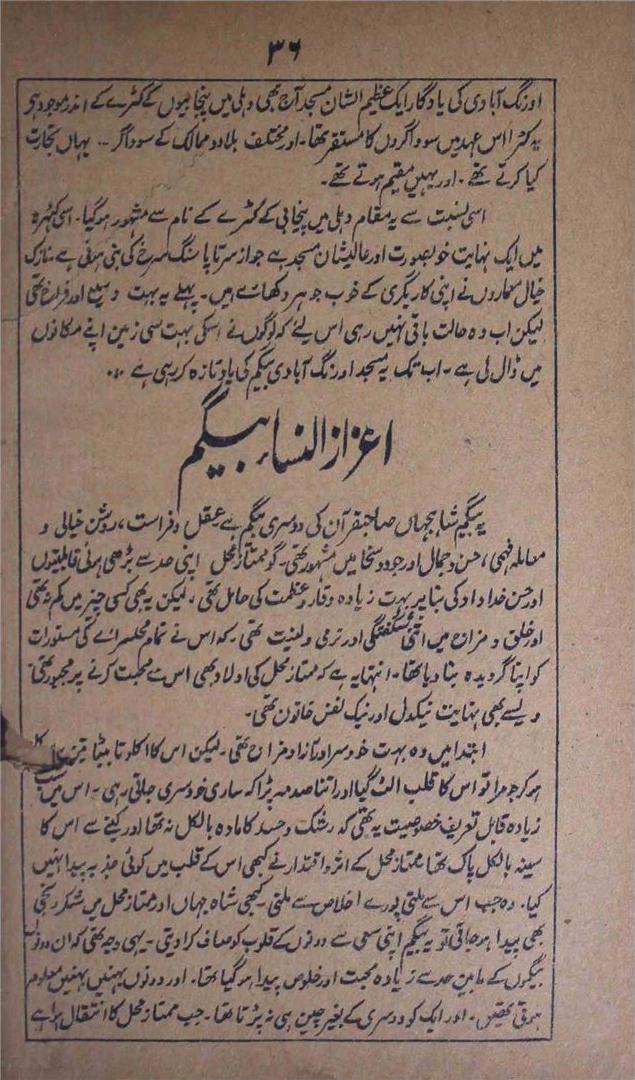 ۳۶
اورنگ آبادی کی یادگار ایک عظیم الشان مسجد آج بھی دہلی میں پنجابیوں کے کٹرے کے اندر موجود ہی
یہ کٹرا اس عہد میں سوداگروں کا مستقر تھا۔ اور مختلف بلاد و ممالک کے سوداگر ... یہاں تجارت
کیا کرتے تھے۔ اور یہیں مقیم ہوتے تھے۔
اسی نسبت سے یہ مقام دہلی میں پنجابی کے کٹرے کے نام سے مشہور ہو گیا۔ اسی کٹہرہ
میں ایک نہایت خوبصورت اور عالیشان مسجد ہے جو از سر تا پا سنگ سرخ کی بنی ہوئی ہے نازک
خیال معماروں نے اپنی کاریگری کے خوب جوہر دکھائے ہیں۔ پہلے یہ بہت وسیع اور فراخ تھی
لیکن اب وہ حالت باقی نہیں رہی اس لیئے کہ لوگوں نے اسکی بہت سی زمین اپنے مکانوں
میں ڈال لی ہے۔ اب تک یہ مسجد اورنگ آبادی بیگم کی یاد تازہ کر رہی ہے
اعزاز النساء بیگم
یہ بیگم شاہجہاں صاحبقران کی دوسری بیگم ہے عقل و فراست، روشن خیالی و
معاملہ فہمی، حسن و جمال اور جود و سخا میں مشہور تھی۔ گو ممتاز محل اپنی حد سے بڑھی ہوئی قابلیتوں
اور حسن خداداد کی بنا پر بہت زیادہ وقار و عظمت کی حامل تھی، لیکن یہ بھی کسی چیز میں کم نہ تھی
اور خلق و مزاج میں اتنی شگفتگی اور نرمی و لینت تھی۔ کہ اس نے تمام محلسرائے کی مستورات
کو اپنا گرویدہ بنا دیا تھا۔ انتہا یہ ہے کہ ممتاز محل کی اولاد بھی اس سے محبت کرنے پر مجبور تھی
ویسے بھی نہایت نیکدل اور نیک نفس خاتون تھی۔
ابتدا میں وہ بہت خود سر اور آزاد مزاج تھی۔ لیکن اس کا اکلوتا بیٹا تین سال کا
ہو کر جو مرا تو اس کا قلب الٹ گیا اور اتنا صدمہ پڑا کہ ساری خود سری جاتی رہی۔ اس میں سب سے
زیادہ قابل تعریف خصوصیت یہ تھی کہ رشک و حسد کا مادہ بالکل نہ تھا اور کینے سے اس کا
سینہ بالکل پاک تھا ممتاز محل کے اثر و اقتدار نے کبھی اس کے قلب میں کوئی جذبہ پیدا نہیں
کیا۔ وہ جب اس سے ملتی پورے اخلاص سے ملتی۔ کبھی شاہ جہاں اور ممتاز محل میں شکر رنجی
بھی پیدا ہو جاتی تو یہ بیگم اپنی سعی سے دونوں کے قلوب کو صاف کرا دیتی۔ یہی وجہ تھی کہ ان دونوں
بیگموں کے مابین حد سے زیادہ محبت اور خلوص پیدا ہو گیا تھا۔ اور دونوں بہنیں بہنیں معلوم
ہوتی تھیں۔ اور ایک کو دوسری کے بغیر چین ہی نہ پڑتا تھا۔ جب ممتاز محل کا انتقال ہوا ہے